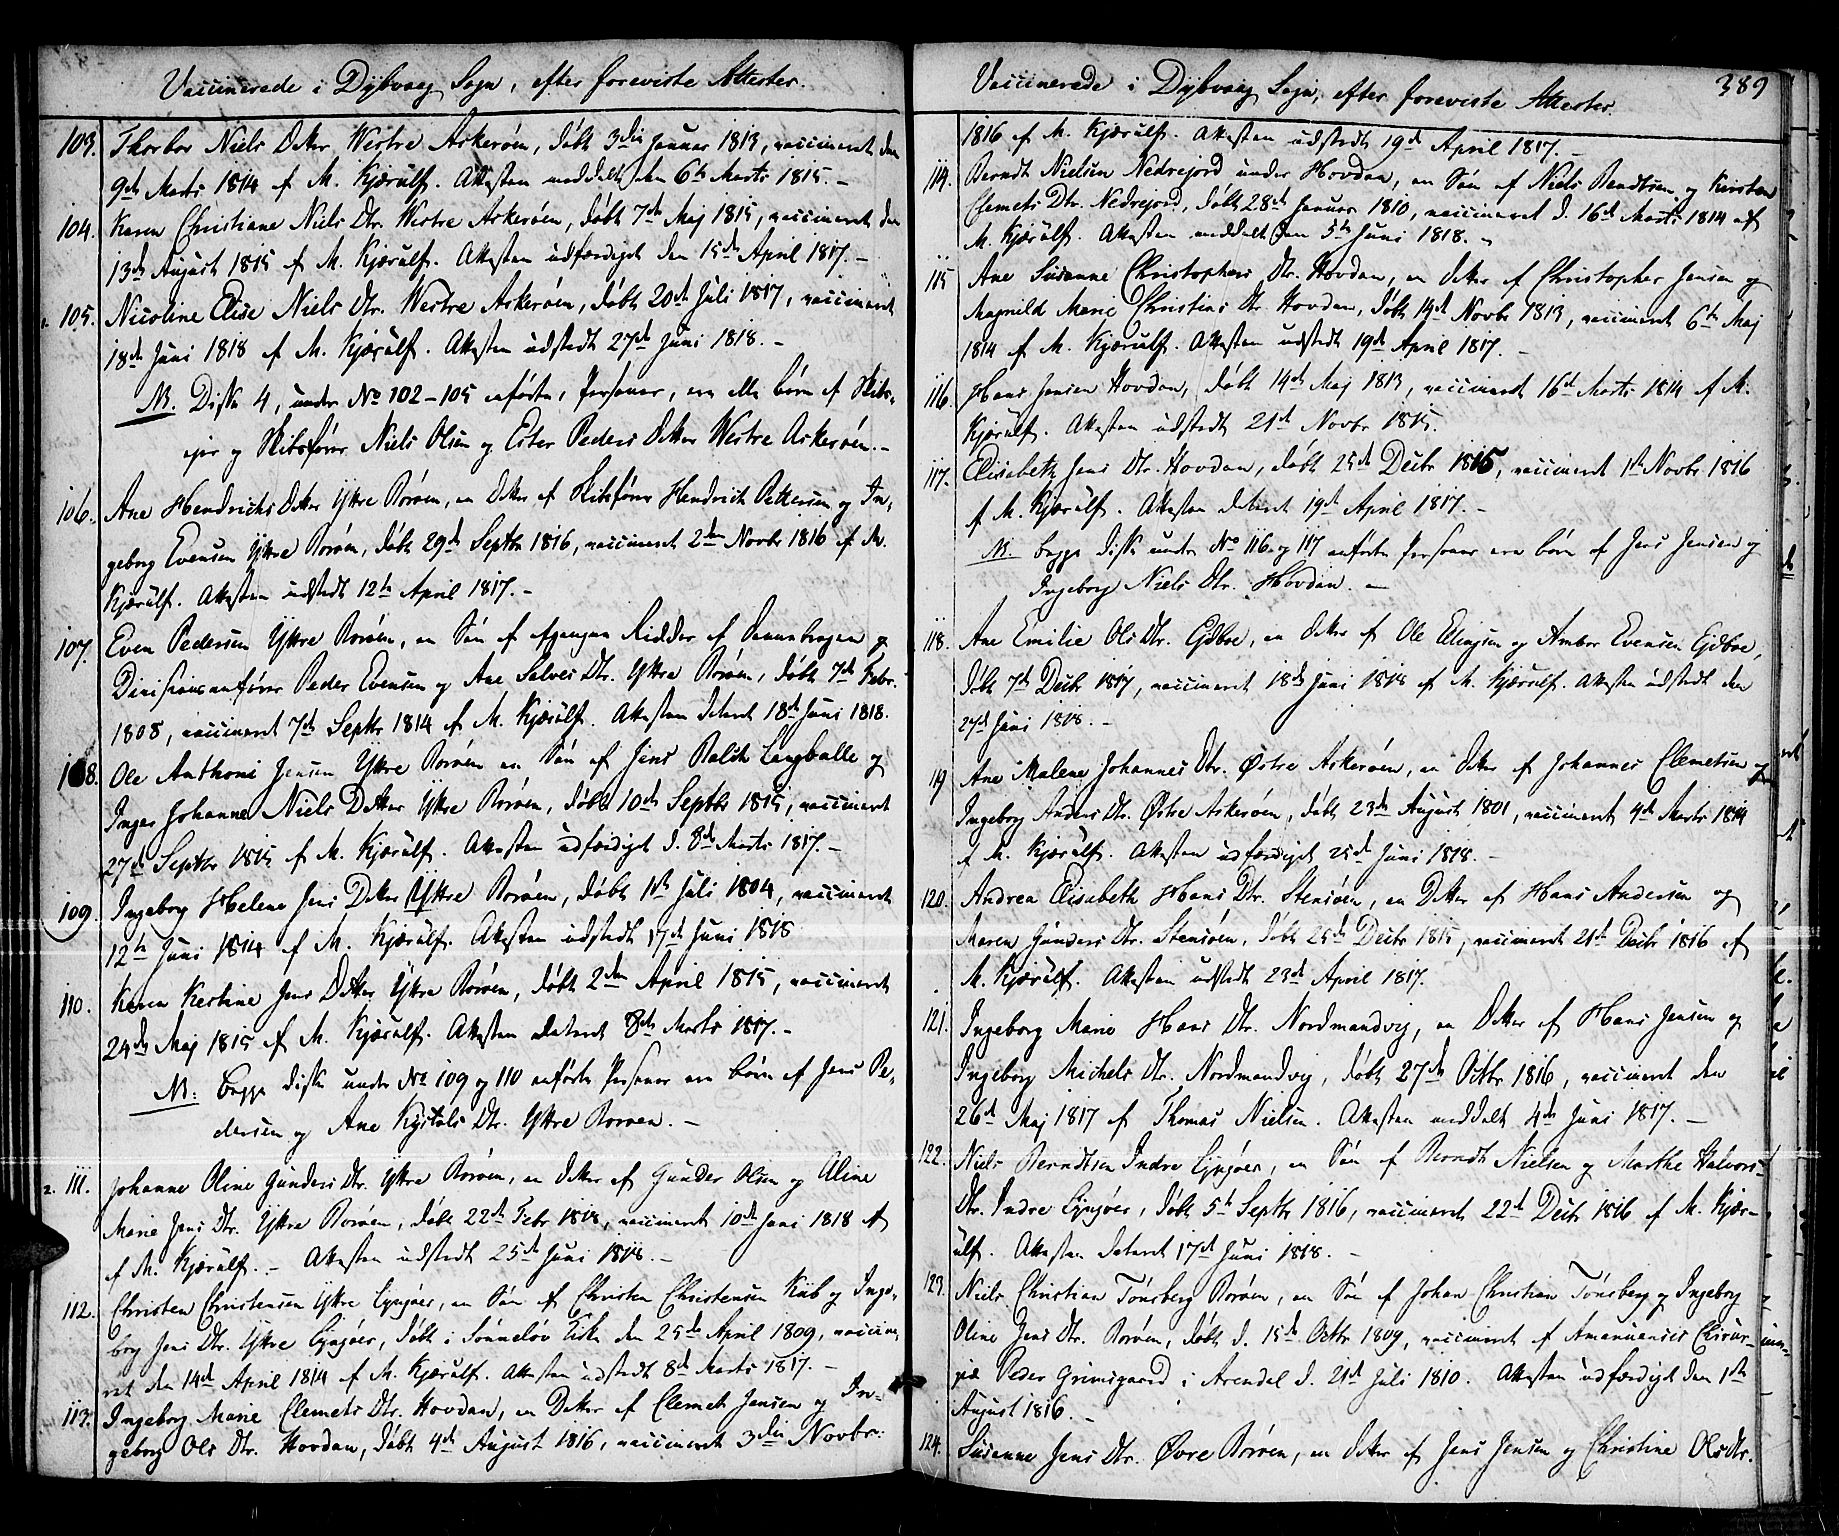 Vaccinerede i Dÿbvaag Sogn, efter foreviste Attester.
103. Thorbor Niels Datter Westre Askerøen, døbt 3die Januar 1813, vaccineret den
9de Marts 1814 af M. Kjærulf. Attesten meddelt den 6te Marts 1815. -
104. Karen Christiane Niels Dtr. Westre Askerøen, døbt 7de Maj 1815, vaccineret den
13de August 1815 af M. Kjærulf. Attesten udfærdiget den 15de April 1817. -
105. Nicoline Elise Niels Dtr. Westre Askerøen, døbt 20de Juli 1817, vaccineret
18de Juni 1818 af M. Kjærulf. Attesten udstedt 27de Juni 1818. -
NB. Disse 4, under No 102-105 anførte, Personer, ere alle børn af Skibs-
ejer og Skibsfører Niels Olsen og Ester Peders Datter Westre Askerøen. -
106. Ane Hendrichs Datter Yttre Borøen, en Datter af Skibsfører Hendrich Pettersen og In-
geborg Evensen Yttre Borøen, døbt 29de Septbr 1816, vaccineret 2den Novbr 1816 af M.
Kjærulf. Attesten udstedt 12te April 1817. -
107. Even Pedersen Yttre Borøen, en Søn af afgangne Ridder af Dannebrogen og
Divisionsanfører Peder Evensen og Ane Salves Dtr. Yttre Borøen, døbt 7de Febr.
1808, vaccineret 7de Septbr 1814 af M. Kjærulf. Attesten dateret 18de Juni 1818.
108. Ole Anthoni Jensen Yttre Borøen en Søn af Jens Balch Langballe og
Inger Johanne Niels Datter Yttre Borøen, døbt 10de Septbr 1815, vaccineret
27de Septbr 1815 af M. Kjærulf. Attesten udfærdiget d. 8de Marts 1817. -
109. Ingeborg Helene Jens Datter Yttre Borøen, døbt 1ste Juli 1804, vaccineret
12te Juni 1814 af M. Kjærulf. Attesten udstedt 17de Juni 1818
110. Karen Kestine Jens Datter Yttre Borøen, døbt 2den April 1815, vaccineret
24de Maj 1815 af M. Kjærulf. Attesten dateret 8de Marts 1817. -
NB. begge disse under No 109 og 110 anførte Personer ere børn af Jens Pe-
dersen og Ane Kystols Dtr. Yttre Borøen. -
111. Johanne Oline Gunders Dtr. Yttre Borøen, en Datter af Gunder Olsen og Aline
Marie Jens Dtr. Yttre Borøen, døbt 22de Febr 1818, vaccineret 10de Juni 1818 af
af M. Kjærulf. - Attesten udstedt 25de Juni 1818. -
112. Christen Christensen Yttre Lyngøer, en Søn af Christen Christensen Kiib og Inge-
borg Jens Dtr. Yttre Lyngøer, døbt i Sønneløv Kirke den 25de April 1809, vaccine-
ret den 14de April 1814 af M. Kjærulf. Attesten udstedt 8de Marts 1817. -
113. Ingeborg Marie Clemets Dtr. Hovdan, en Datter af Clemet Jensen og In-
geborg Ols Dtr. Hovdan, døbt 4de August 1816, vaccineret 3die Novbr.
Vaccinerede i Dÿbvaag Sogn, efter foreviste Attester.
389
1816 af M. Kjærulf. Attesten udstedt 19de April 1817. -
114. Berndt Nielsen Nedrejord under Hovdan, en Søn af Niels Bendtsen og Kirsten
Clemets Dtr. Nedrejord, døbt 28de Januar 1810, vaccineret d. 16de Marts 1814 af
M. Kjærulf. Attesten meddelt den 5te Juni 1818. -
115 Ane Susanne Christophers Dtr. Hovdan, en Datter af Christopher Jensen og
Magnild Marie Christens Dtr Hovdan, døbt 14de Novbr 1813, vaccineret 6te Maj
1814 af M. Kjærulf. Attesten udstedt 19de April 1817. -
116. Hans Jensen Hovdan, døbt 14de Maj 1813, vaccineret 16de Marts 1814 af M.
Kjærulf. Attesten udstedt 21de Novbr 1815.
117. Elisabeth Jens Dtr. Hovdan, døbt 25de Decbr 1815, vaccineret 1ste Novbr 1816
af M. Kjærulf. Attesten dateret 19de April 1817. -
NB. begge disse under No 116 og 117 anførte Personer ere børn af Jens Jensen og
Ingeborg Niels Dtr. Hovdan. -
118. Ane Emilie Ols Dtr. Gjdboe, en Datter af Ole Ellingsen og Amber Evensen Gjdboe,
døbt 7de Decbr 1817, vaccineret 18de Juni 1818 af M. Kjærulf. Attesten udstedt den
27de Juni 1818. -
119 Ane Malene Johannes Dtr. Østre Askerøen, en Datter af Johannes Clemetsen og
Ingeborg Anders Dtr. Østre Askerøen, døbt 23de August 1801, vaccineret 4de Marts 1814
af M. Kjærulf. Attesten udfærdiget 25de Juni 1818. -
120. Andrea Elisabeth Hans Dtr. Stensøen, en Datter af Hans Andersen og
Maren Gunders Dtr. Stensøen, døbt 25de Decbr 1815, vaccineret 21de Decbr 1816 af
M. Kjærulf. Attesten udstedt 23de April 1817.
121. Ingeborg Marie Hans Dtr. Nordmandvig, en Datter af Hans Jensen og
Ingeborg Michels Dtr. Nordmandvig, døbt 27de Octbr 1816, vaccineret den
26de Maj 1817 af Thomas Nielsen. Attesten meddelt 4de Juni 1817. -
122. Niels Berndtsen Indre Lyngøer, en Søn af Berndt Nielsen og Marthe Halvors-
Dtr. Indre Lyngøer, døbt 5te Septbr 1816, vaccineret 22de Decbr 1816 af M. Kjær-
ulf. Attesten dateret 17de Juni 1818. -
123. Niels Christian Tønsberg Borøen, en Søn af Johan Christian Tønsberg og Ingeborg
Oline Jens Dtr. Borøen, døbt d. 15de Octbr 1809, vaccineret af Amanuensis Chirur-
giæ Peder Grimsgaard i Arendal d. 21de Juli 1810. Attesten udfærdiget den 1ste
August 1816. -
124. Susanne Jens Dtr. Øvre Borøen, en Datter af Jens Jensen og Christine Ols Dtr.